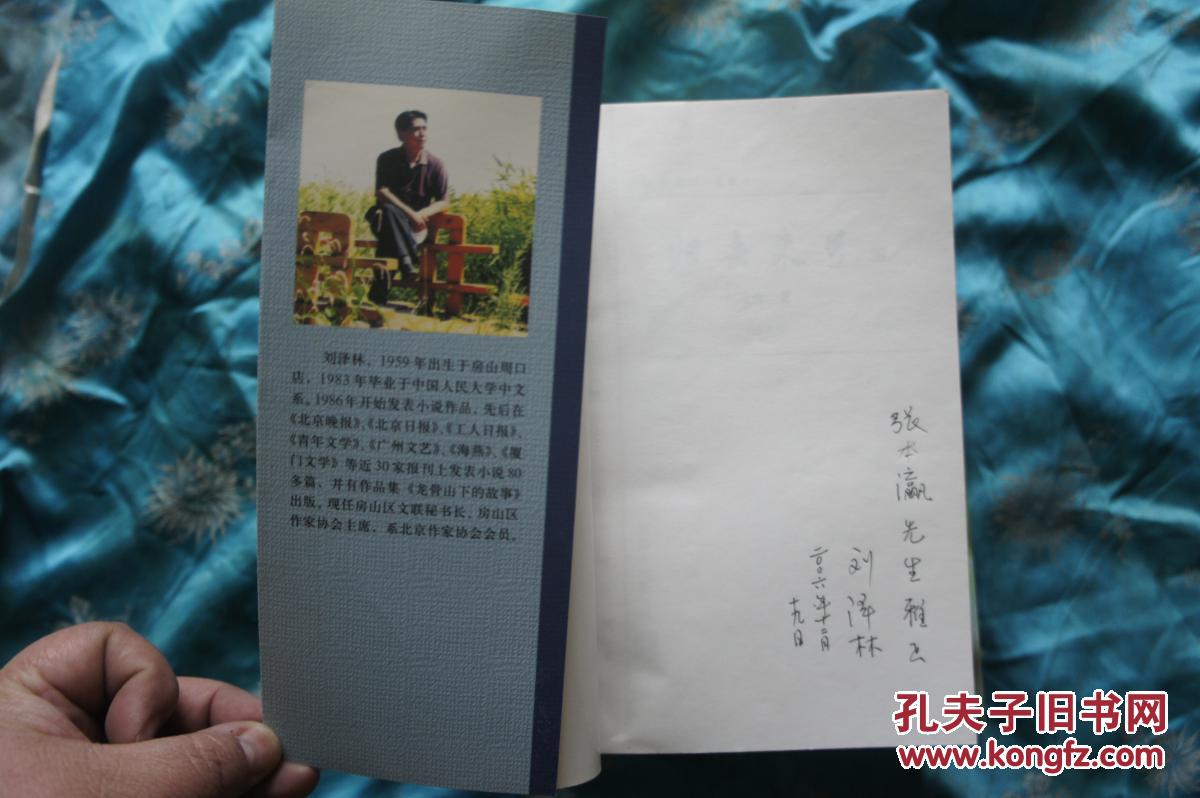 刘泽林，1959年出生于房山周口
店，1983年毕业于中国人民大学中文
系。1986年开始发表小说作品，先后在
《北京晚报》、《北京日报》、《工人日报》、
《青年文学》、《广州文艺》、《海燕》、《厦
门文学》等近30家报刊上发表小说80
多篇，并有作品集《龙骨山下的故事》
出版，现任房山区文联秘书长，房山区
作家协会主席，系北京作家协会会员。
张本瀛先生雅正
刘泽林
二〇〇六年十二月
十九日
孔夫子旧书网
www.kongfz.com